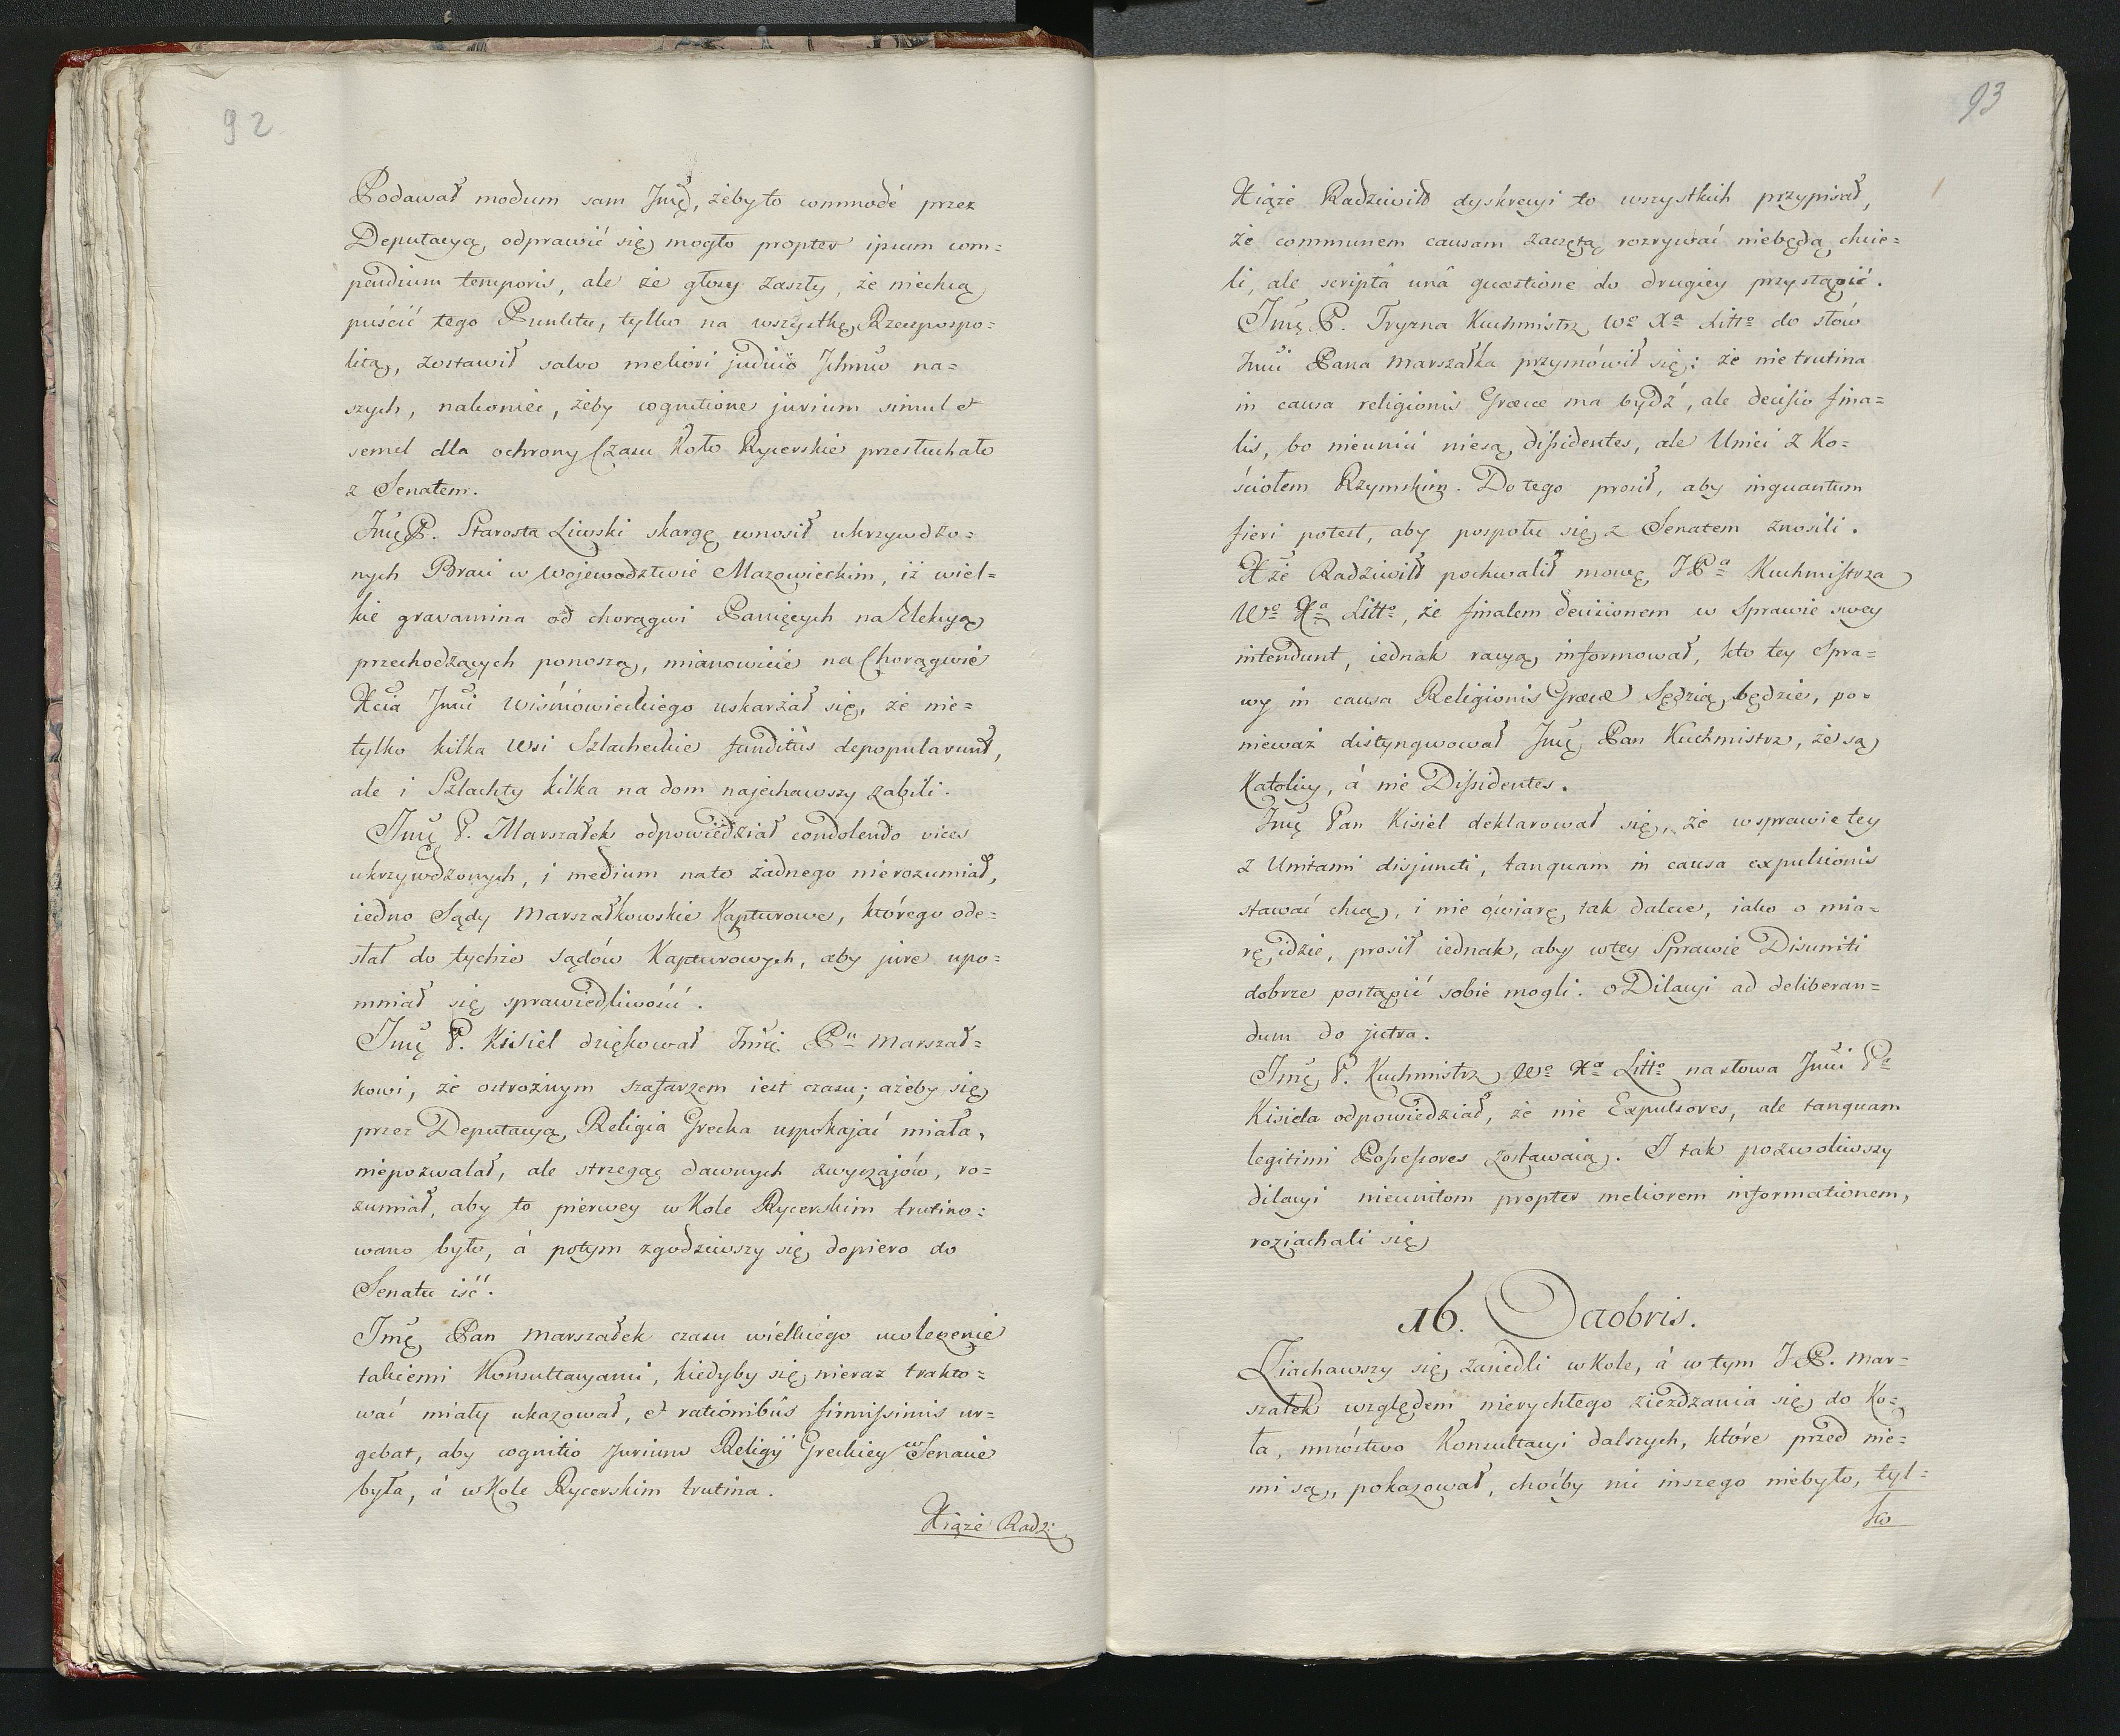 92
Podawał modum sam Jmę, żeby to commodé przez
Deputacyą, odprawić się mogło propter ipsum com=
pendium temporis, ale że głosy zaszły, że niechcą
puścić tego Punktu, tylko na wszystkę Rzeczpospo=
litą, zostawił salvo meliori judicio Jchmw na=
szych, nakoniec, żeby cognitione jurium simul et
semel dla ochrony Czasu Koło Rycerskie przesłuchało
z Senatem.
Jmę P. Starosta Liwski skargę wnosił ukrzywdzo=
nych Braci w Województwie Mazowieckim, iż wiel=
kie gravamina od chorągwi Panięcych na Elekcyą
przechodzących ponoszą, mianowicie na Chorągwie
Xcia Jmci Wiśniowieckiego uskarżał się, że nie=
tylko kilka Wsi Szlacheckie funditùs depopularunt,
ale i Szlachty kilka na dom najechawszy zabili.
Jmę P. Marszałek odpowiedział condolendo vices
ukrzywdzonych, i medium nato żadnego nierozumiał,
iedno Sądy Marszałkowskie Kapturowe, którego ode=
słał do tychże sądów Kapturowych, aby jure upo=
mniał się sprawiedliwości.
Jmę P. Kisiel dziękował Jmci Pu Marszał=
kowi, że ostrożnym szafarzem iest czasu; ażeby się
przez Deputacyą Religia Grecka uspokajać miała,
niepozwalał, ale strzegąc dawnych zwyczajów, ro=
zumiał, aby to pierwey w Kole Rycerskim trutino=
wano było, á potym zgodziwszy się, dopiero do
Senatu iść.
Jmę Pan Marszałek czasu wielkiego uwleczenie
takiemi Konsultacyami, kiedyby się nieraz trakto=
wać miały ukazował, et rationibûs firmissimis ur=
gebat, aby cognitio Jurium Religij Greckiey w Senacie
była, á w Kole Rycerskim trutina.
Xiąże Radzi
93
Xiąże Radziwiłł dyskrecyi to wszystkich przypisał,
że communem causam zaczętą rozrywać niebędą chcie=
li, ale scriptâ unâ quæstione do drugiey przystąpić.
Jmę P. Tryzna Kuchmistrz Wo Xa Litto do słów
Jmci Pana Marszałka przymówił się: że nie trutina
in causa religionis Græcæ ma bydź, ale decisio fina=
lis, bo nieunici niesą dissidentes, ale Unici z Ko=
ściołem Rzymskim. Do tego prosił, aby inquantum
fieri potest, aby pospołu się z Senatem znosili.
Xże Radziwiłł pochwalił mowę JPa Kuchmistrza
Wo Xa Litto, że finalem decisionem w Sprawie swey
intendunt, iednak racyą informował, kto tey Spra=
wy in causa Religionis Græcæ Sędzią będzie, po=
nieważ distyngwował Jmę Pan Kuchmistrz, że są
Katolicy, á nie Dissidentes.
Jmę Pan Kisiel deklarował się, że w sprawie tey
z Unitami disjuncti, tanquam in causa expulsionis
stawać chcą, i nie o wiarę, tak dalece, iako o mia=
rę, idzie, prosił iednak, aby w tey Sprawie Disuniti
dobrze postąpić sobie mogli. o Dilacyi ad deliberan=
dum do jutra.
Jmę P. Kuchmistrz Wo Xa Litto na słowa Jmci Pa
Kisiela odpowiedział, że nie Expulsores, ale tanquam
legitimi Possessores zostawaią. I tak pozwoliwszy
dilacyi nieunitom propter meliorem informationem,
roziachali się
16. Octobris.
Ziachawszy się, zasiedli w Kole, á w tym J P. Mar=
szałek względem nierychłego zieżdzania się do Ko=
ła, mnóstwo Konsultacyi dalszych, które przed nie=
mi są, pokazował, choćby nic inszego niebyło, tyl=
ko